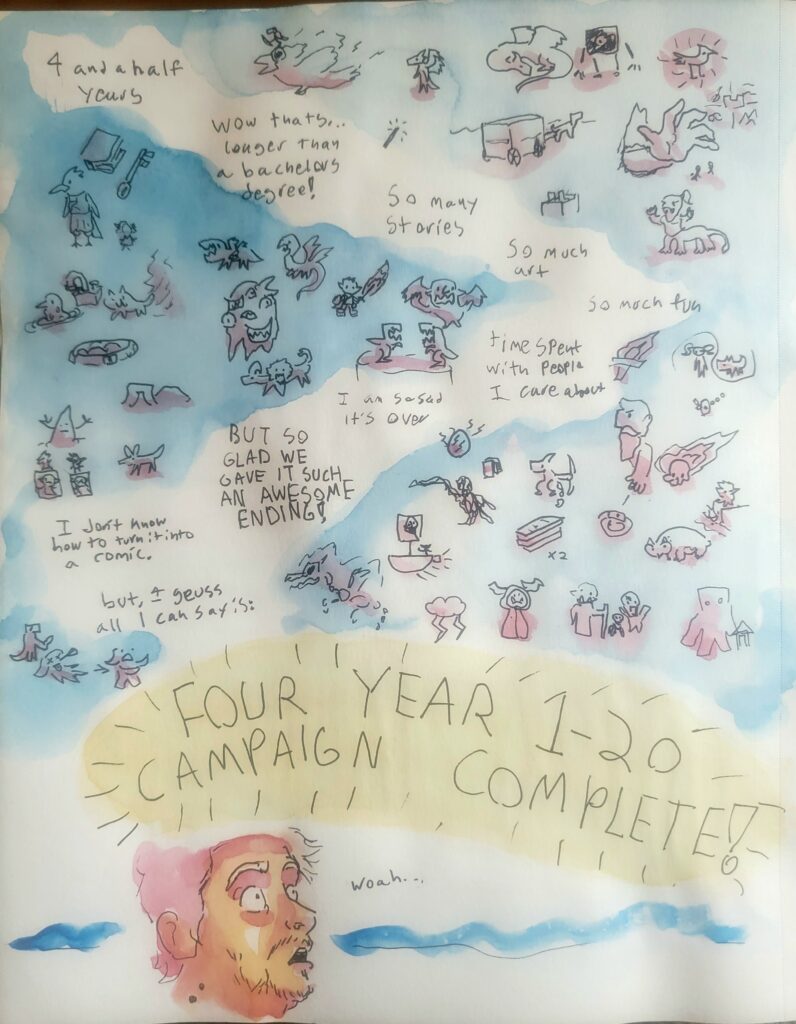 4 and a half
years
Wow thats...
longer than
a bachelors
degree!
So many
stories
So much
art
So much fun
time spent
with people
I care about
I am so sad
it's over
BUT SO
GLAD WE
GAVE IT SUCH
AN AWESOME
ENDING!
x2
I don't know
how to turn it into
a comic.
but, I geuss
all I can say is:
FOUR YEAR 1-20
CAMPAIGN COMPLETE!
woah...